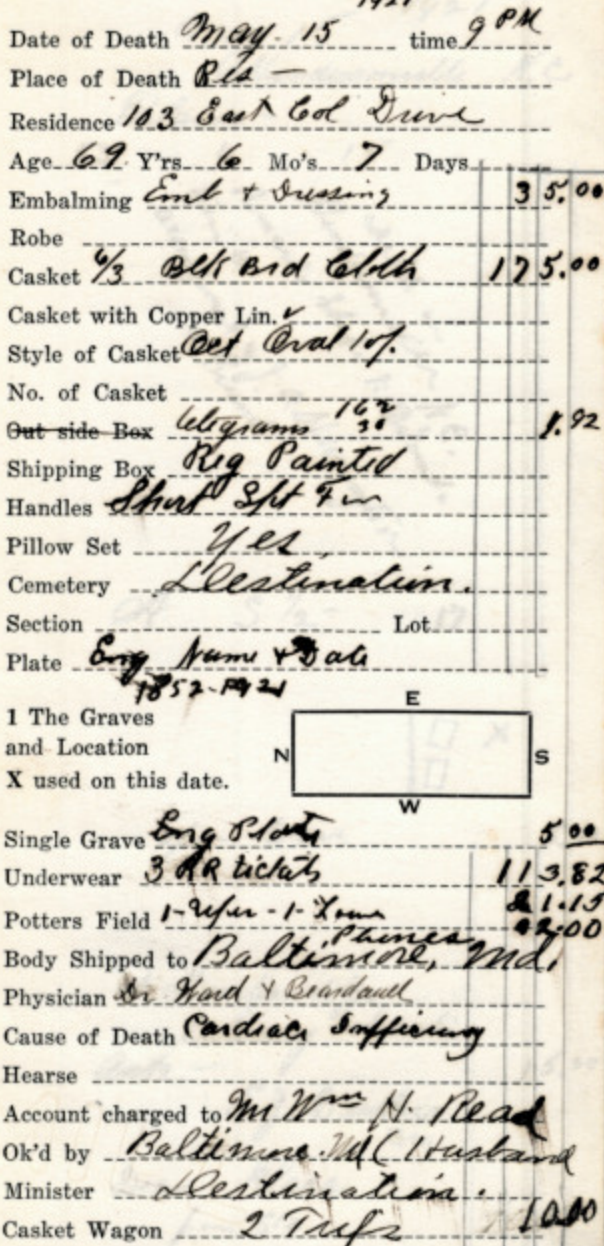 1921
Date of Death May 15 time 9 PM
Place of Death Res —
Residence 103 East Col Drive
Age 69 Y'rs 6 Mo's 7 Days
Embalming Emb + Dressing 35.00
Robe
Casket 6/3 Blk Brd Cloth 175.00
Casket with Copper Lin.
Style of Casket Oct Oval
No. of Casket
Out side Box telegrams 162 30 1.92
Shipping Box Reg Painted
Handles Short
Pillow Set Yes
Cemetery Destination.
Section Lot
Plate Eng Name & Date
1852-1921
1 The Graves
and Location
X used on this date.
E
N S
W
Single Grave Eng Plate 5 00
Underwear 3 RR tickets 113.82
Potters Field 1-Uper-1-Lower 21.15
Phones 2.00
Body Shipped to Baltimore, Md.
Physician Dr Ward &
Cause of Death Cardiac
Hearse
Account charged to Mr Wm H. Read
Ok'd by Baltimore Md (Husband
Minister Destination.
Casket Wagon 2 Trips 10.00